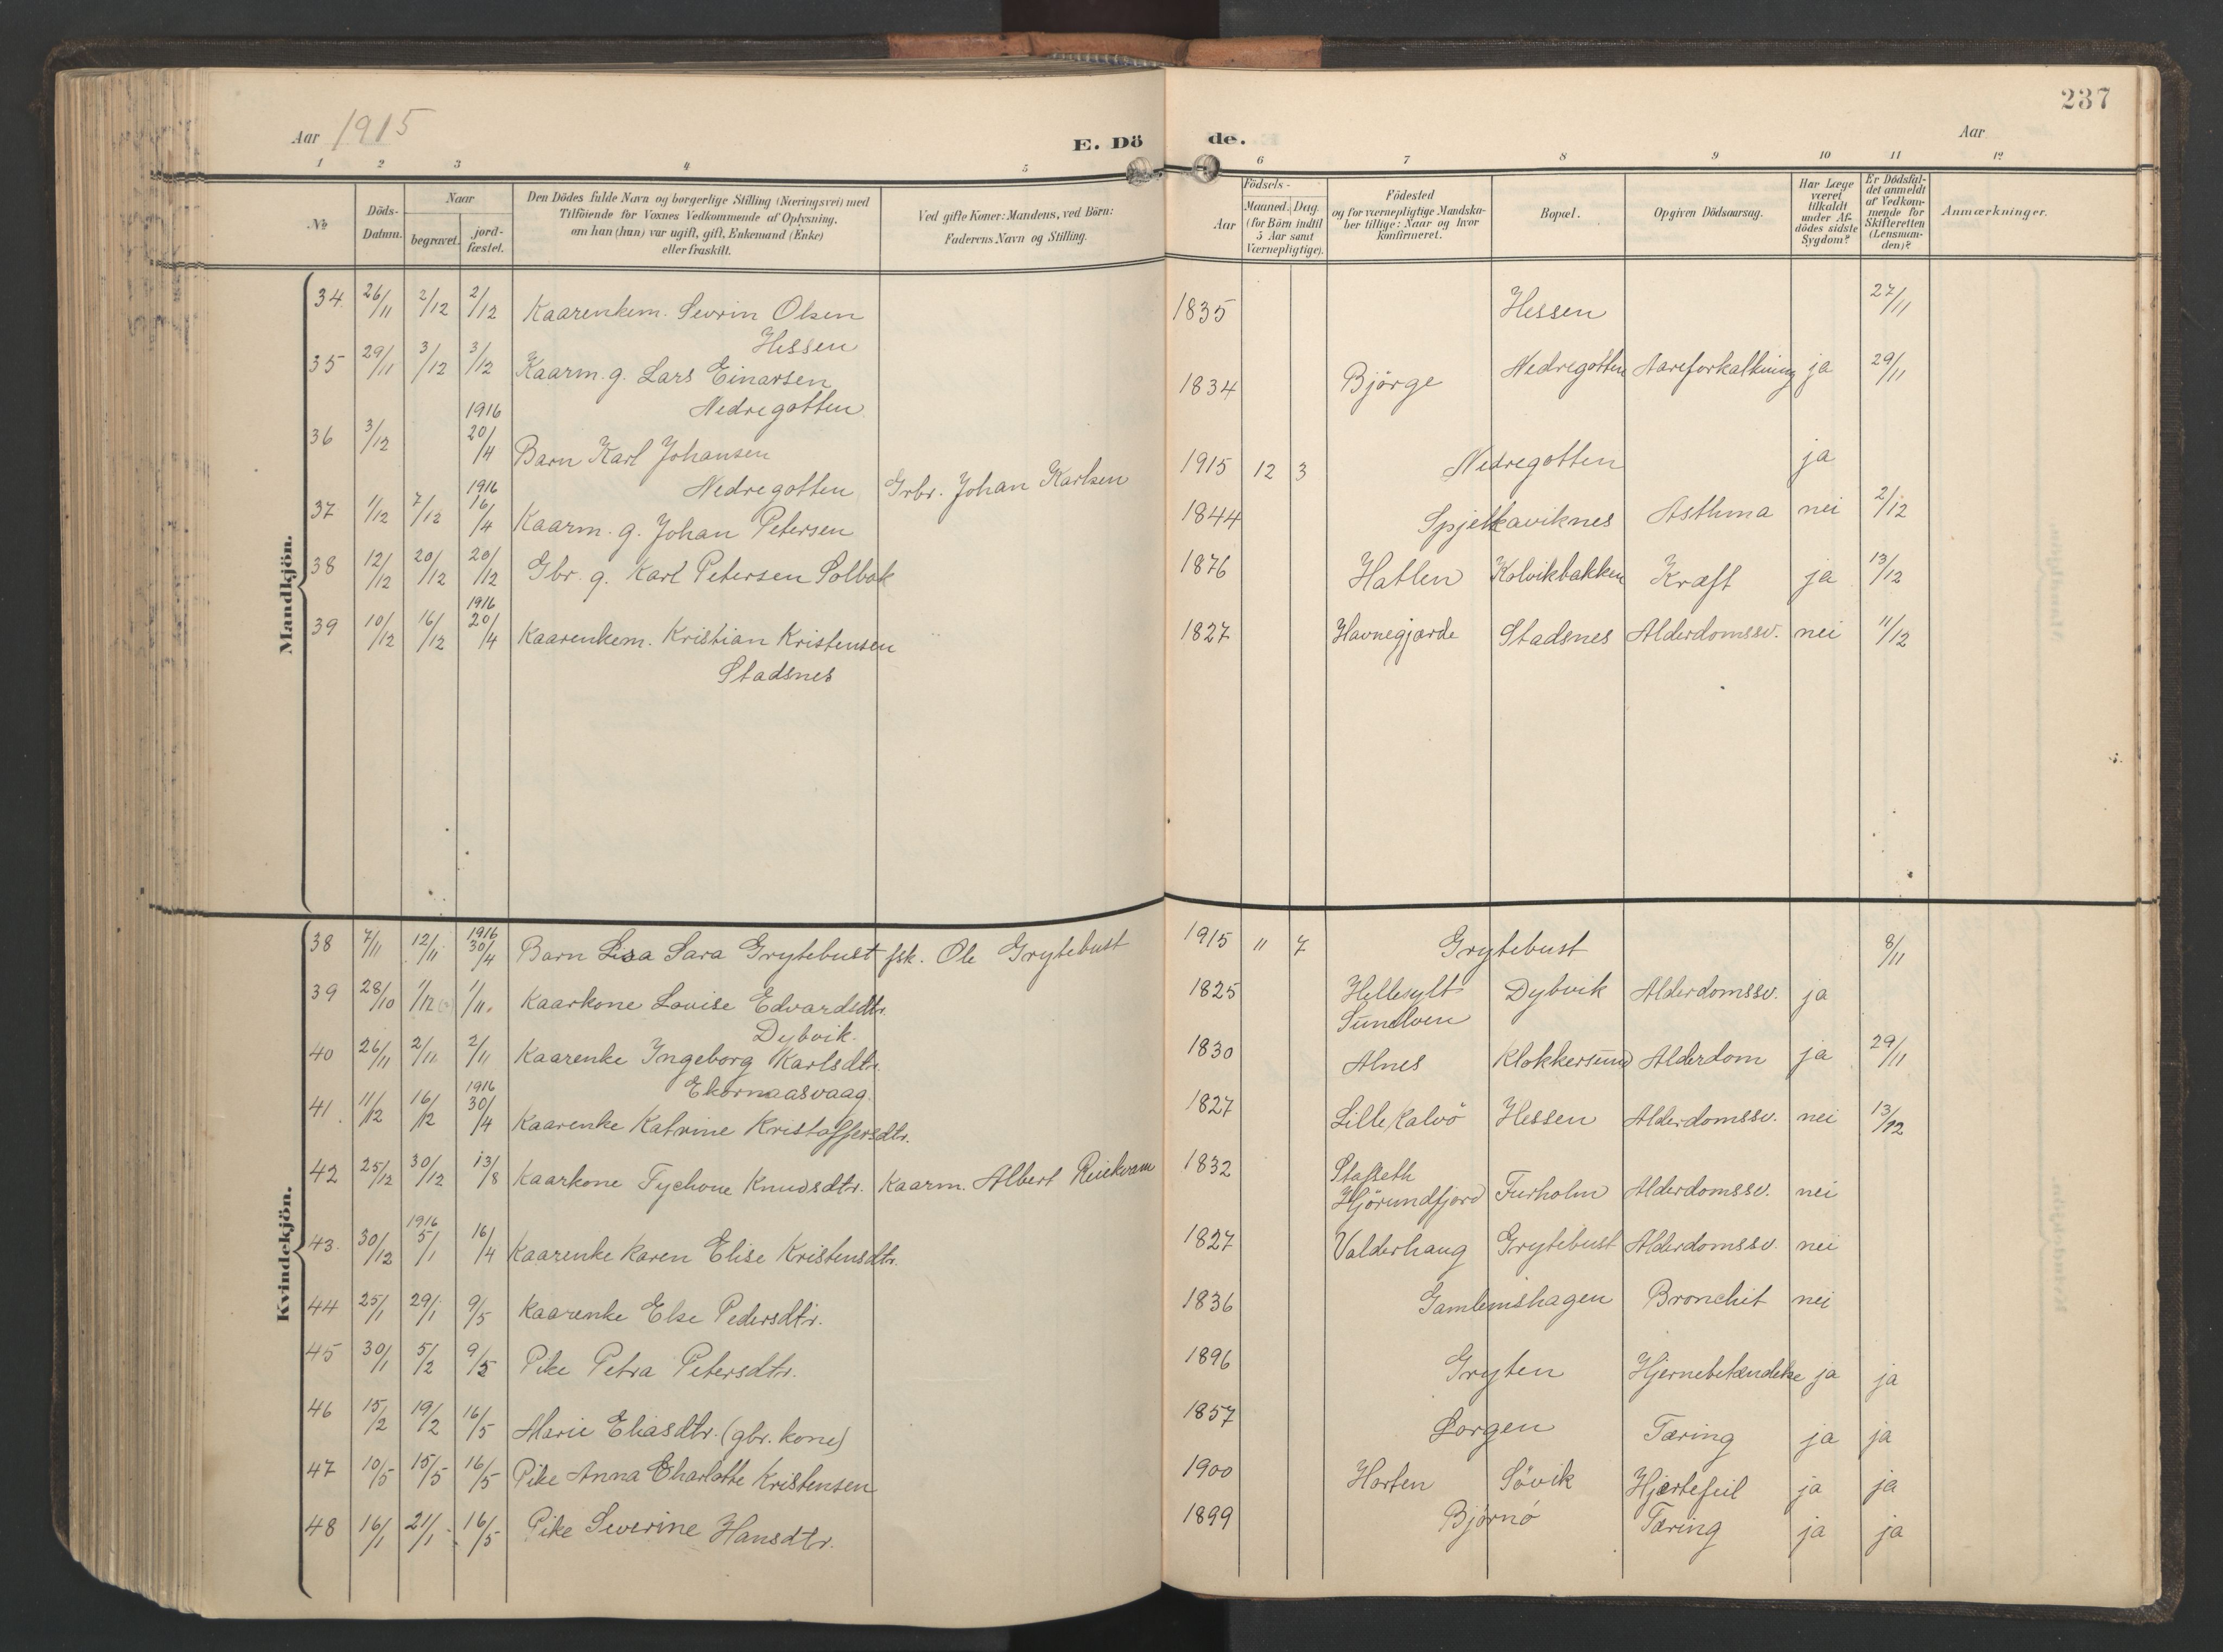 237
Aar 1915
E. Dö de.
Aar
1 2 3 4 5 6 7 8 9 10 11 12
№
Döds-Datum.
Naar
begravet.
jord-fæstet.
Den Dödes fulde Navn og borgerlige Stilling (Næringsvei) med
Tilföiende for Voxnes Vedkommende af Oplysning,
om han (hun) var ugift, gift, Enkemand (Enke)
eller fraskilt.
Ved gifte Koner: Mandens, ved Börn:
Faderens Navn og Stilling.
Födsels-
Aar
Maaned. Dag.
(for Börn indtil
5 Aar samt
Værnepligtige).
Födested
og for værnepligtige Mandska-
ber tillige: Naar og hvor
konfirmeret.
Bopæl.
Opgiven Dödsaarsag.
Har Læge
været
tilkaldt
under Af-
dödes sidste
Sygdom?
Er Dödsfal-
det anmeldt
af Vedkom-
mende for
Skifteretten
(Lensman-
den)?
Anmærkninger.
Mandkjön.
34. 26/11 2/12 2/12 Kaarenkem. Sevrin Olsen 1835 Hessen 27/11
Hessen
35 29/11 3/12 3/12 Kaarm. g. Lars Einarsen 1834 Björge Nedregotten Aareforkalkning ja 29/11
Nedregotten
36 3/12 1916 20/4 Barn Karl Johansen 1915 12 3 Nedregotten ja
Nedregotten Grbr. Johan Karlsen
37 1/12 7/12 1916 16/4 Kaarm. g. Johan Petersen 1844 Spjelkaviknes Asthma nei 2/12
38 12/12 20/12 20/12 Gbr. g. Karl Petersen Solbak 1876 Hatlen Kolvikbakken Kræft ja 13/12
39 10/12 16/12 1916 20/4 Kaarenkem. Kristian Kristensen 1827 Havnegjærde Stadsnes Alderdomssv. nei 11/12
Stadsnes
Kvindekjön.
38 7/11 12/11 1916 30/4 Barn Lisa Sara Grytebust fsk. Ole Grytebust 1915 11 7 Grytebust 8/11
39 28/10 1/12 1/11. Kaarkone Louise Edvardsdtr. 1825 Hellesylt Dybvik Alderdomssv. ja
Dybvik. Sunelven
40 26/11 2/11 2/11 Kaarenke Ingeborg Karlsdtr. 1830 Alnes Klokkersund Alderdom ja 29/11
Ekornaasvaag.
41. 11/12 16/12 1916 30/4 Kaarenke Katrine Kristoffersdtr. 1827 Lille Kalvö Hessen Alderdomssv. nei 13/12
42 25/12 30/12 13/8 Kaarkone Tychone Knudsdtr. Kaarm. Albert 1832 Stafseth
Hjörundfjord Furholm Alderdomssv. nei
43. 30/12 1916 5/1 16/4 Kaarenke Karen Elise Kristensdtr. 1827 Valderhaug Grytebust Alderdomssv. nei
44 25/1 29/1 9/5 Kaarenke Else Pedersdtr. 1836 Gamlemshagen Bronchit nei
45 30/1 5/2 9/5 Pike Petra Petersdtr. 1896 Gryten Hjernebetændelse ja ja
46 15/2 19/2 16/5 Marie Eliasdtr. (gbr. kone) 1857 Lorgen Tæring ja ja
47 10/5 15/5 16/5 Pike Anna Charlotte Kristensen 1900 Horten Sövik Hjertefeil ja ja
48 16/1 21/1. 16/5 Pike Severine Hansdtr. 1899 Björnö Tæring ja ja